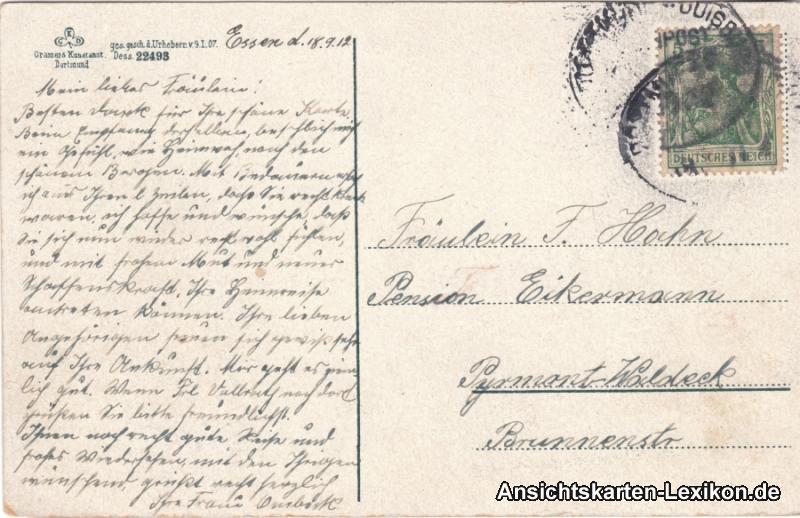 CKD
Cramers Kunstanst.
Dortmund
ges. gesch. d. Urhebern v. 9.1.07.
Dess. 22493
Essen d. 18.9.12
Mein liebes Fräulein!
Besten Dank für Ihre schöne Karte.
Beim Empfang derselben, beschlich mich
ein Gefühl, wie Heimweh, nach den
schönen Bergen. Mit Bedauern
ich aus Ihren l. Zeilen, daß Sie recht krank
waren, ich hoffe und wünsche, daß
Sie sich nun wieder recht wohl fühlen,
und mit frohem Mut und neuer
Schaffenskraft, Ihre Heimreise
antreten können. Ihre lieben
Angehörigen freuen sich gewiß sehr
auf Ihre Ankunft. Mir geht es ziem
lich gut. Wenn Frl. Vallrath noch dort
grüßen Sie bitte freundlichst.
Ihnen noch recht gute Reise und
frohes Wiedersehen, mit den Ihrigen
wünschend, grüßt recht herzlich
Ihre Frau
DEUTSCHES REICH
Fräulein F. Hahn
Pension Eikermann
Pyrmont-Waldeck
Brunnenstr
Ansichtskarten-Lexikon.de